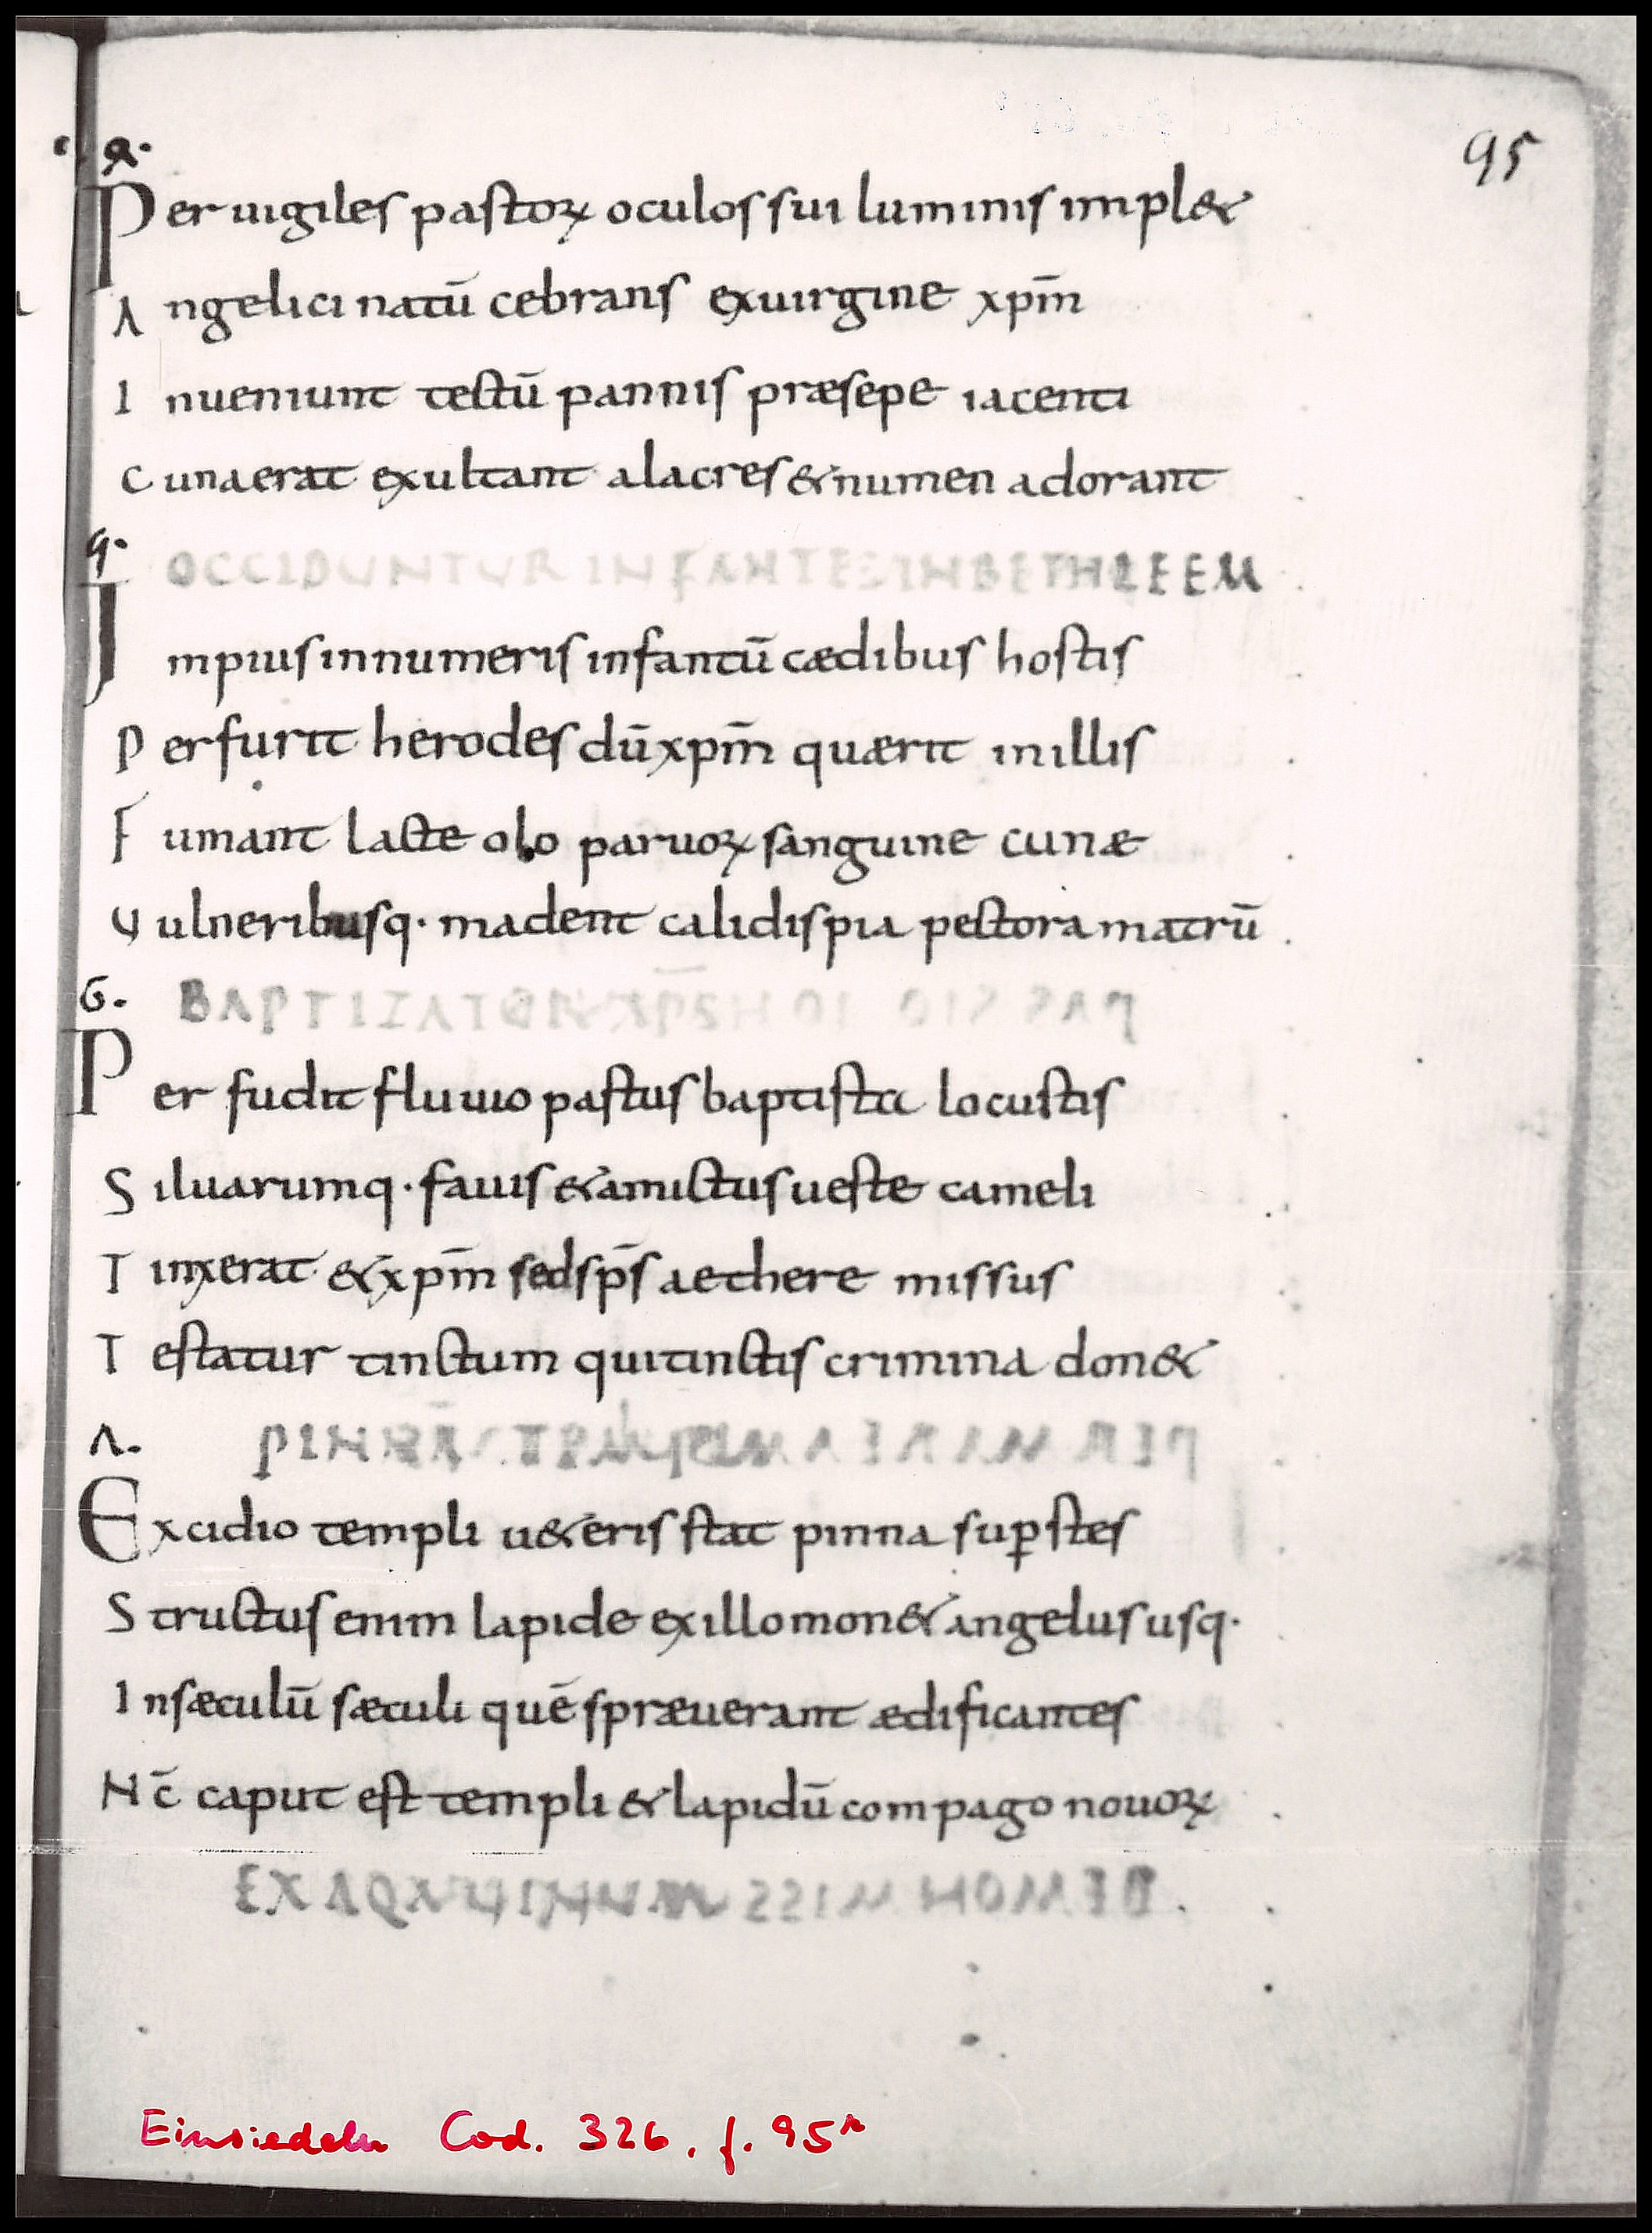 95
a.
Per uigiles pastoꝝ oculos sui luminis impl&
Angelici natū cebrans ex uirgine xp̄m
Inueniunt tectū pannis præsepe iacenti
Cuna erat exultant alacres & numen adorant
q.
OCCIDUNTUR INFANTES IN BETHLEEM
Impius innumeris infantū cædibus hostis
Perfurit herodes dū xp̄m quærit in illis
Fumant lacte olo paruoꝝ sanguine cunæ
Uulneribusq· madent calidis pia pectora matrū
G.
BAPTIZATOR XPS
Per fudit fluuio pastus baptista locustis
Siluarumq· fauis & amictus ueste cameli
Tinxerat & xp̄m sed sp̄s aethere missus
Testatur tinctum qui tinctis crimina don&
Λ.
Excidio templi u&eris stat pinna suꝑstes
Structus enim lapide ex illo mon& angelus usq·
In sæculū sæculi quē spræuerant ædificantes
Nc̄ caput est templi & lapidū compago nouoꝝ
EX AQUA
Einsiedeln Cod. 326. f. 95r